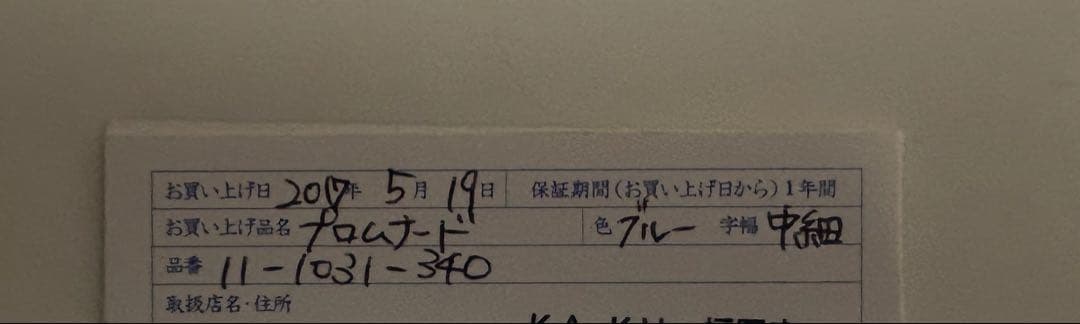 お買い上げ日 2017年 5月 19日 保証期間(お買い上げ日から)1年間
お買い上げ品名 プロムナード 色 ブルー 字幅 中細
品番 11-1031-340
取扱店名・住所